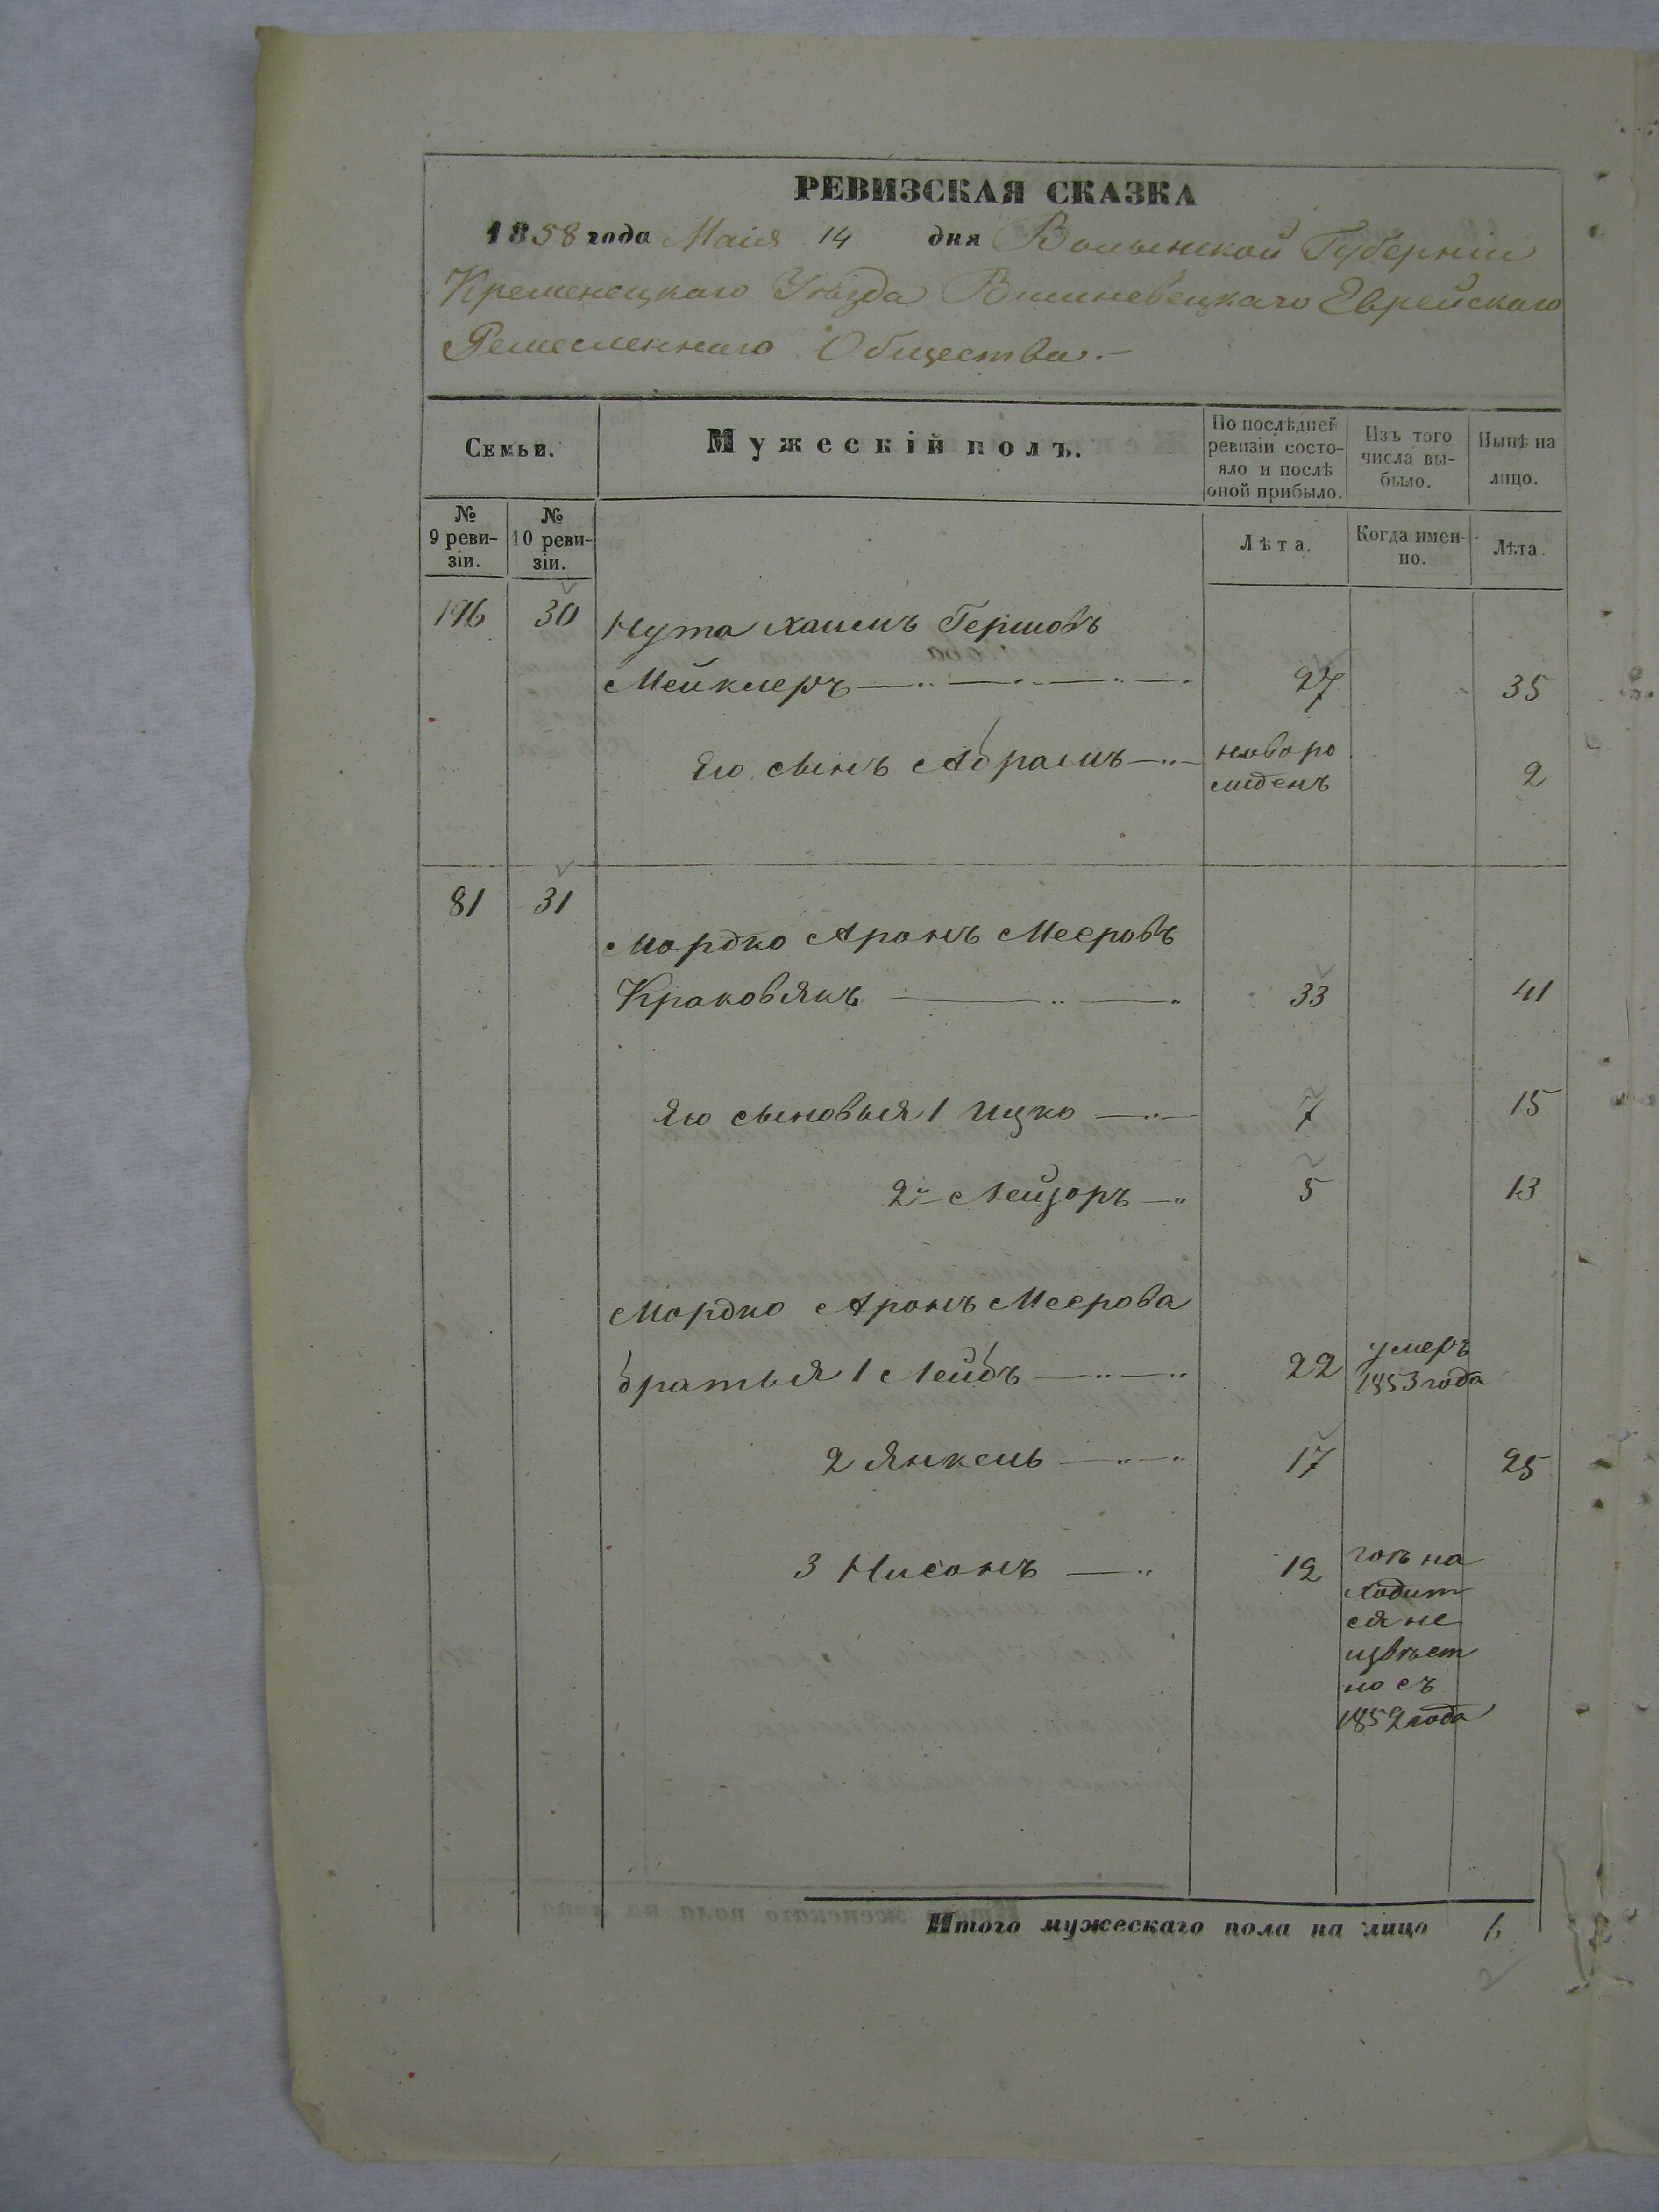 РЕВИЗСКАЯ СКАЗКА
1858 года Маія 14 дня Волынской Губерніи
Кременецкаго Уѣзда Вишневецкаго Еврейскаго
Ремесленнаго Общества.-
Семьи.
Мужескій полъ.
По послѣдней ревизіи состо-
яло и послѣ оной прибыло.
Изъ того числа вы-
было.
Нынѣ на лицо.
№ 9 реви-
зіи.
№ 10 реви-
зіи.
Лѣта.
Когда имен-
но.
Лѣта.
196 30 Нута Хаимъ Гершовъ
Мейклеръ 27 35
Его сынъ Абрамъ новоро
жденъ 2
81 31
Мордко Аронъ Мееровъ
Краковякъ 33 41
Его сыновья 1 Ицко 7 15
2й Лейзоръ 5 13
Мордко Аронъ Меерова
братья 1 Лейбъ 22 умеръ
1853 года
2 Янкель 17 25
3 Нисонъ 12 гдѣ на
ходит
ся не
извѣст
но съ
1852 года
Итого мужескаго пола на лицо 6